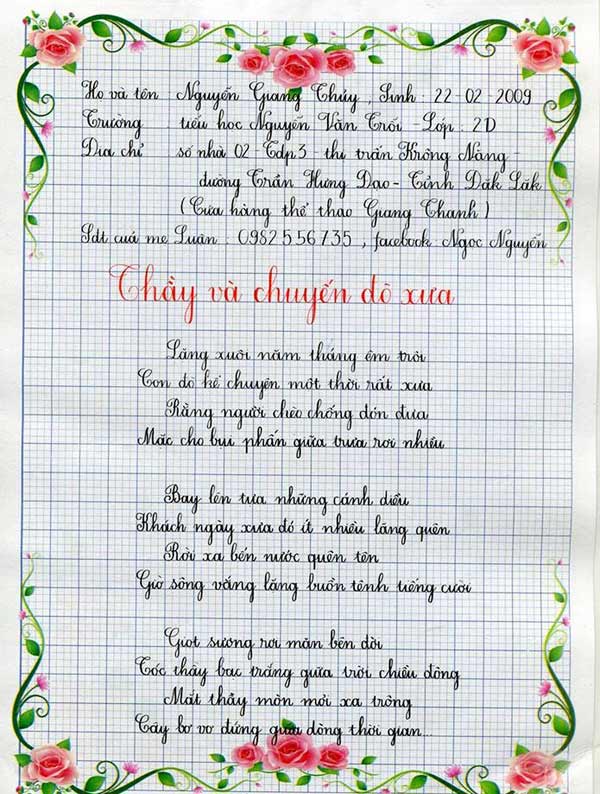 Họ và tên Nguyễn Giang Thủy, Sinh: 22-02-2009
Trường tiểu học Nguyễn Văn Trỗi - Lớp: 2D
Địa chỉ số nhà 02 - Tdp3 - thị trấn Krông Năng -
đường Trần Hưng Đạo - Tỉnh Đăk Lăk
(Cửa hàng thể thao Giang Thanh)
Sđt của mẹ Luận: 0982556735, facebook Ngọc Nguyễn
Thầy và chuyến đò xưa
Lặng xuôi năm tháng êm trôi
Con đò kể chuyện một thời rất xưa
Rằng người chèo chống đón đưa
Mặc cho bụi phấn giữa trưa rơi nhiều
Bay lên tựa những cánh diều
Khách ngày xưa đó ít nhiều lãng quên
Rời xa bến nước quên tên
Giờ sông vắng lặng buồn tênh tiếng cười
Giọt sương rơi mặn bên đời
Tóc thầy bạc trắng giữa trời chiều đông
Mắt thầy mòn mỏi xa trông
Cây bơ vơ đứng giữa dòng thời gian...